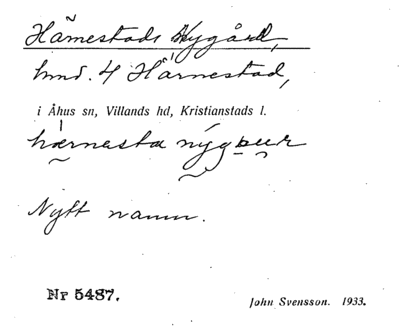 Härnestads Nygård,
hmd. 4 Härnestad,
i Åhus sn, Villands hd, Kristianstads l.
hærnesta nýgɒuɽ
Nytt namn.
Nr 5487.
John Svensson. 1933.